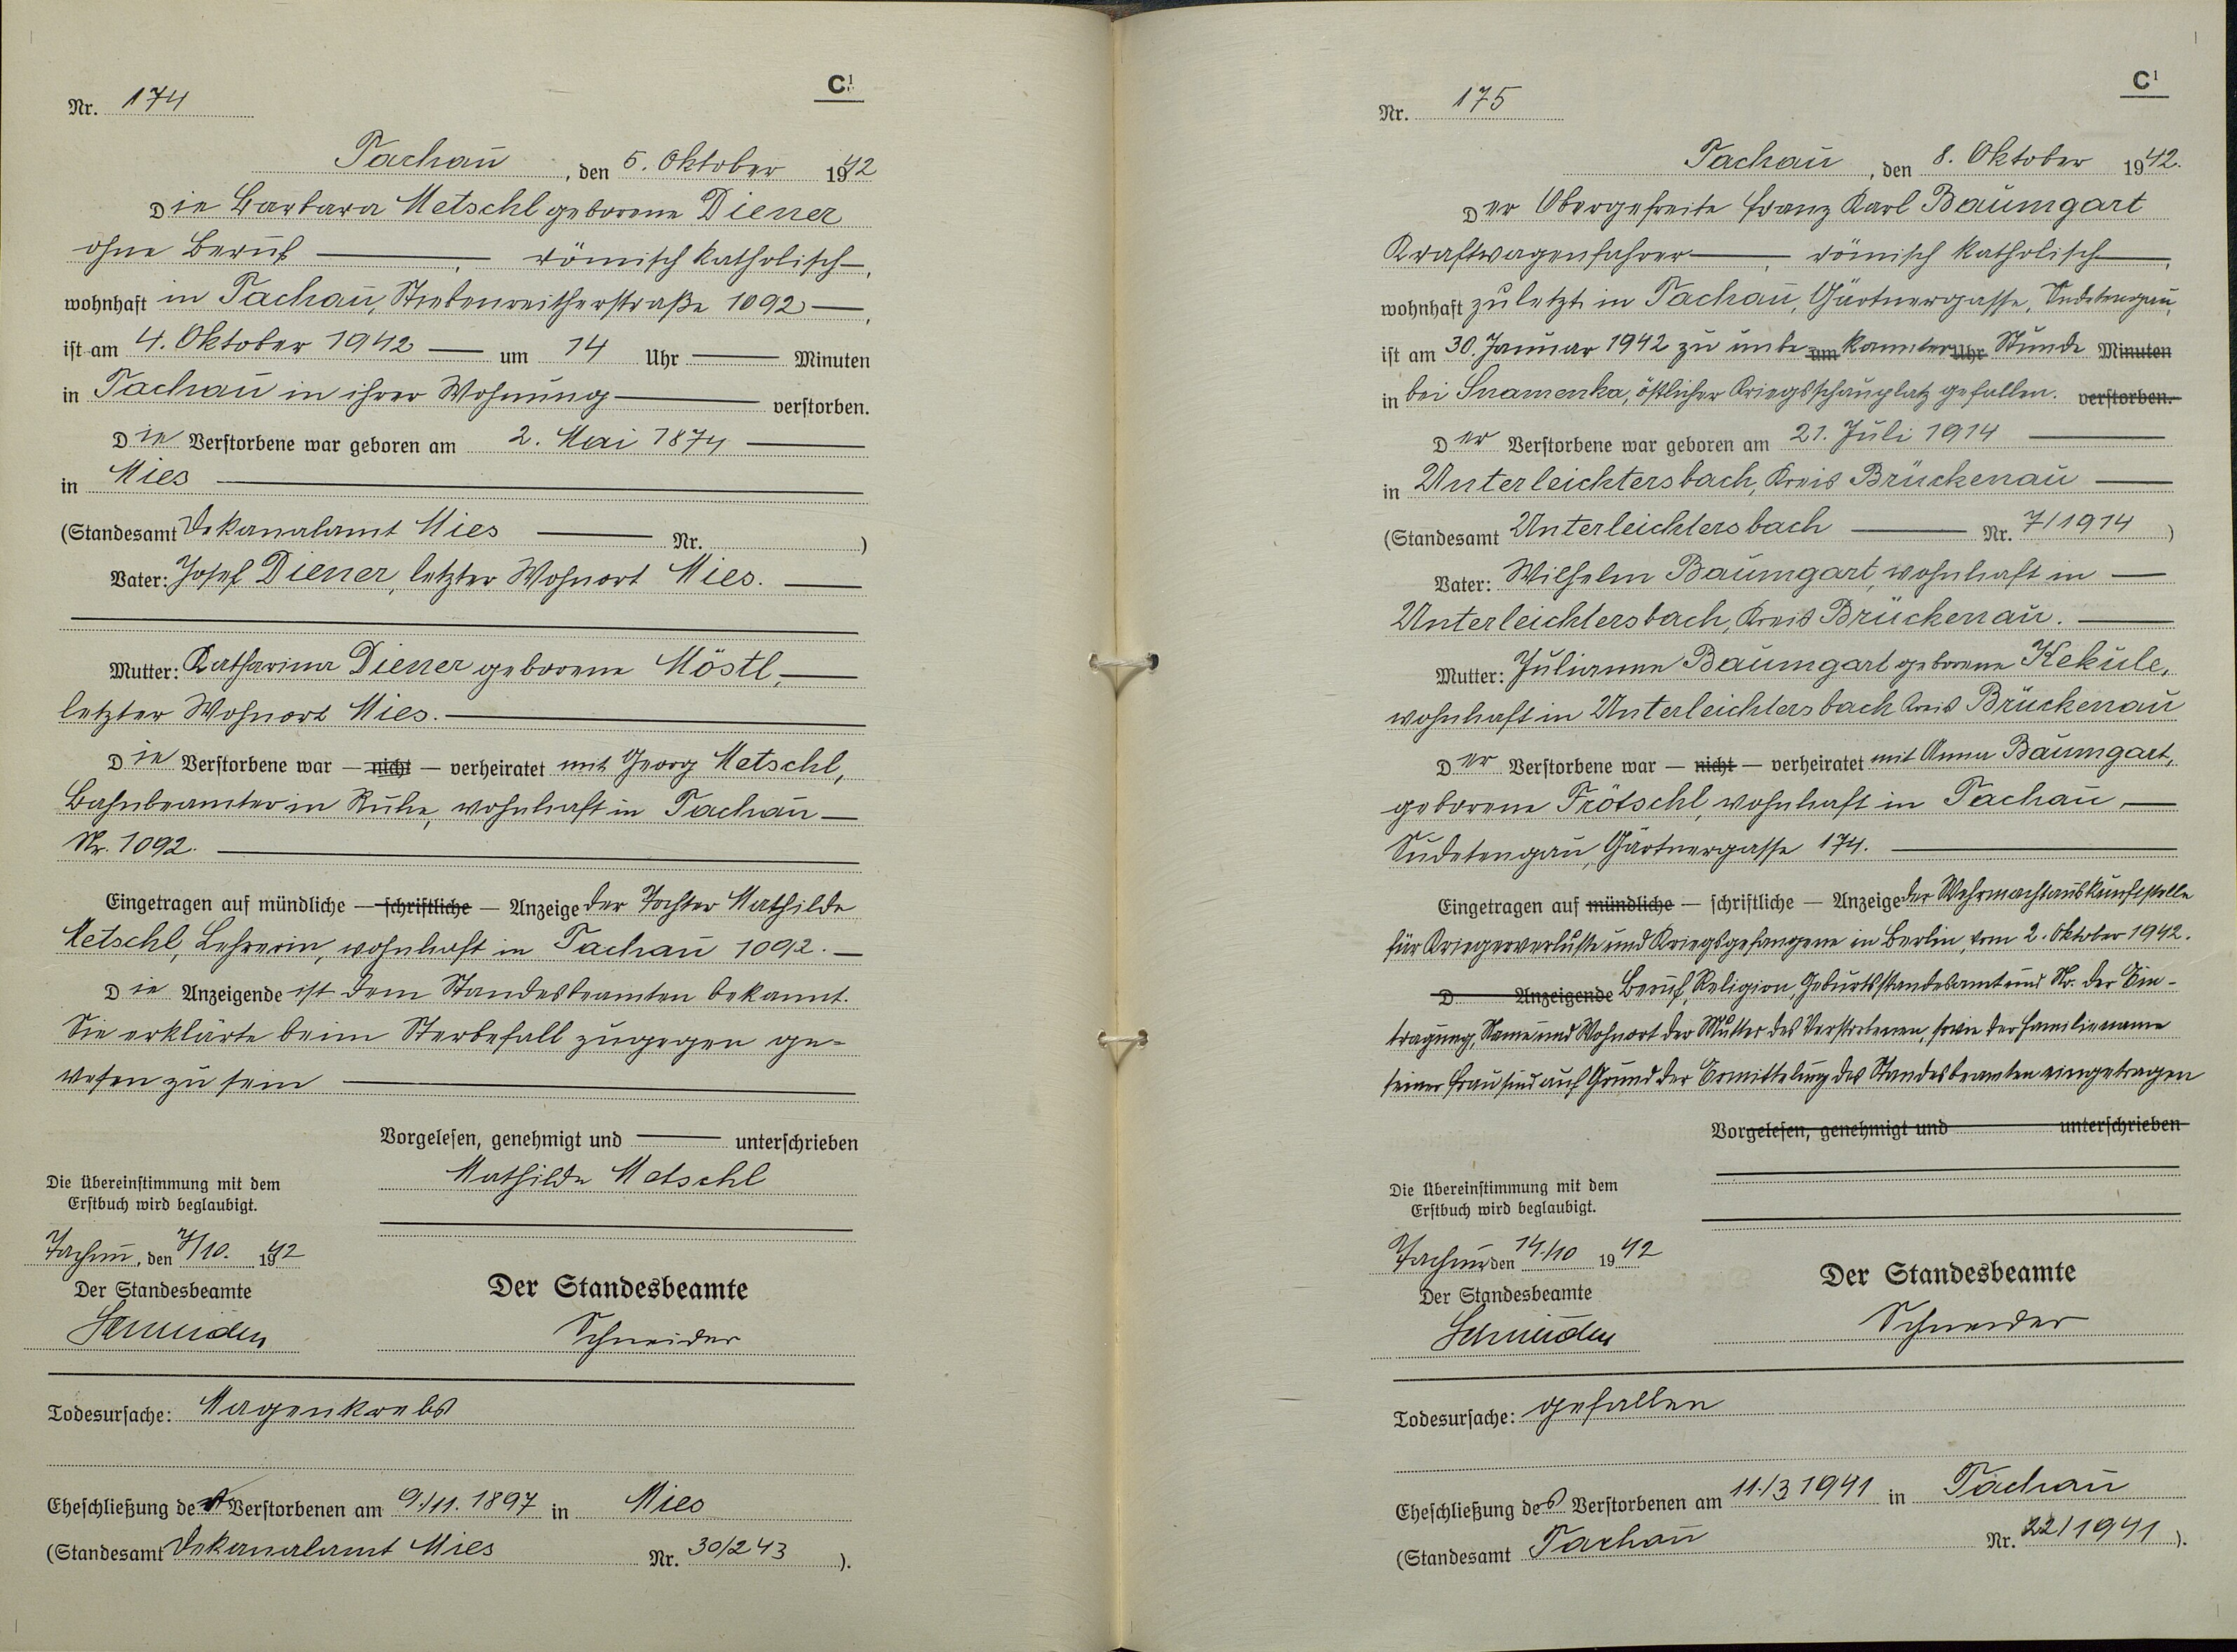 C¹
Nr. 174
Tachau, den 5. Oktober 1942
Die Barbara Metschl geborene Diener
ohne Beruf —, römisch katholisch —,
wohnhaft in Tachau, Stiebenreitherstraße 1092 —,
ist am 4. Oktober 1942 — um 14 Uhr — Minuten
in Tachau in ihrer Wohnung — verstorben.
Die Verstorbene war geboren am 2. Mai 1874 —
in Mies —
(Standesamt Dekanalamt Mies — Nr. )
Vater: Josef Diener, letzter Wohnort Mies. —
Mutter: Katharina Diener geborene Möstl, —
letzter Wohnort Mies. —
Die Verstorbene war — nicht — verheiratet mit Georg Metschl,
Bahnbeamter in Ruhe, wohnhaft in Tachau —
Nr. 1092. —
Eingetragen auf mündliche — schriftliche — Anzeige der Tochter Mathilde
Metschl, Lehrerin, wohnhaft in Tachau 1092. —
Die Anzeigende ist dem Standesbeamten bekannt.
Sie erklärte beim Sterbefall zugegen ge-
wesen zu sein —
Vorgelesen, genehmigt und — unterschrieben
Mathilde Metschl
Die Übereinstimmung mit dem
Erstbuch wird beglaubigt.
Tachau, den 7/10. 1942
Der Standesbeamte
Schneider
Der Standesbeamte
Schneider
Todesursache: Magenkrebs
Eheschließung der Verstorbenen am 9./11. 1897 in Mies
(Standesamt Dekanalamt Mies Nr. 30/243 ).
C¹
Nr. 175
Tachau, den 8. Oktober 1942.
Der Obergefreite Franz Karl Baumgart
Kraftwagenfahrer —, römisch katholisch —,
wohnhaft zuletzt in Tachau, Gärtnergasse, Sudetengau,
ist am 30. Januar 1942 zu unbe- um kannter Uhr Stunde Minuten
in bei Snamenka, östlicher Kriegsschauplatz gefallen. verstorben.
Der Verstorbene war geboren am 21. Juli 1914 —
in Unterleichtersbach, Kreis Brückenau —
(Standesamt Unterleichtersbach — Nr. 7/1914 )
Vater: Wilhelm Baumgart, wohnhaft in —
Unterleichtersbach, Kreis Brückenau. —
Mutter: Julianne Baumgart geborene Kekule,
wohnhaft in Unterleichtersbach Kreis Brückenau
Der Verstorbene war — nicht — verheiratet mit Anna Baumgart,
geborene Frötschl, wohnhaft in Tachau, —
Sudetengau, Gärtnergasse 174. —
Eingetragen auf mündliche — schriftliche — Anzeige der Wehrmachtauskunftstelle
für Kriegerverluste und Kriegsgefangene in Berlin, vom 2. Oktober 1942.
D Anzeigende Beruf, Religion, Geburtsstandesamt und Nr. der Ein-
tragung, Name und Wohnort der Mutter des Verstorbenen, sowie der Familienname
seiner Frau sind auf Grund der Ermittelung des Standesbeamten eingetragen
Vorgelesen, genehmigt und unterschrieben
Die Übereinstimmung mit dem
Erstbuch wird beglaubigt.
Tachau den 14./10 1942
Der Standesbeamte
Schneider
Der Standesbeamte
Schneider
Todesursache: gefallen
Eheschließung des Verstorbenen am 11./3 1941 in Tachau
(Standesamt Tachau Nr. 22/1941 ).